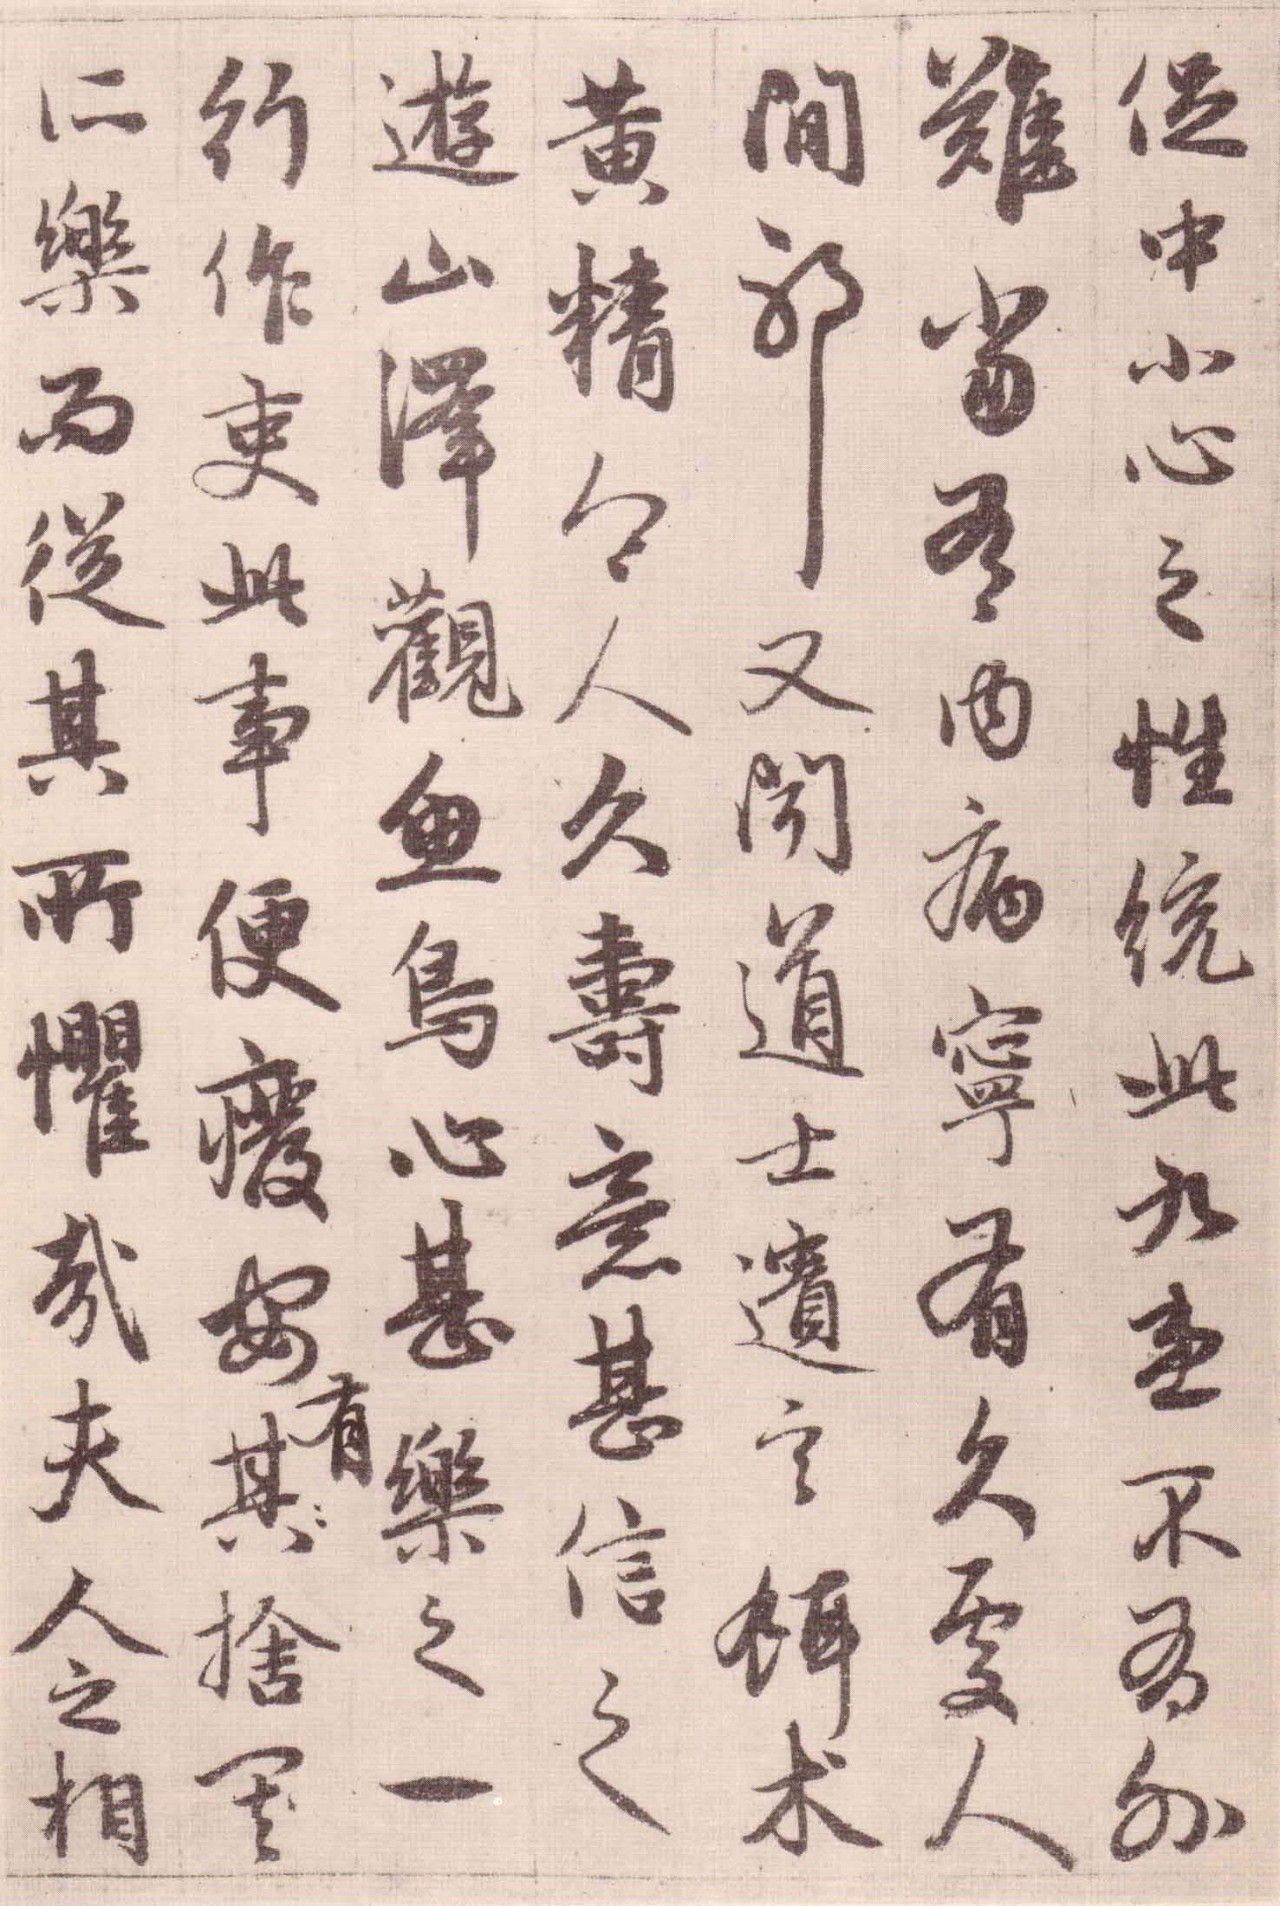 促中小心之性統此九患不有外
難當有內病寧有久處人
間邪又聞道士遺言餌术
黃精令人久壽意甚信之
遊山澤觀魚鳥心甚樂之一
行作吏此事便廢安有其捨其
所樂而從其所懼哉夫人之相